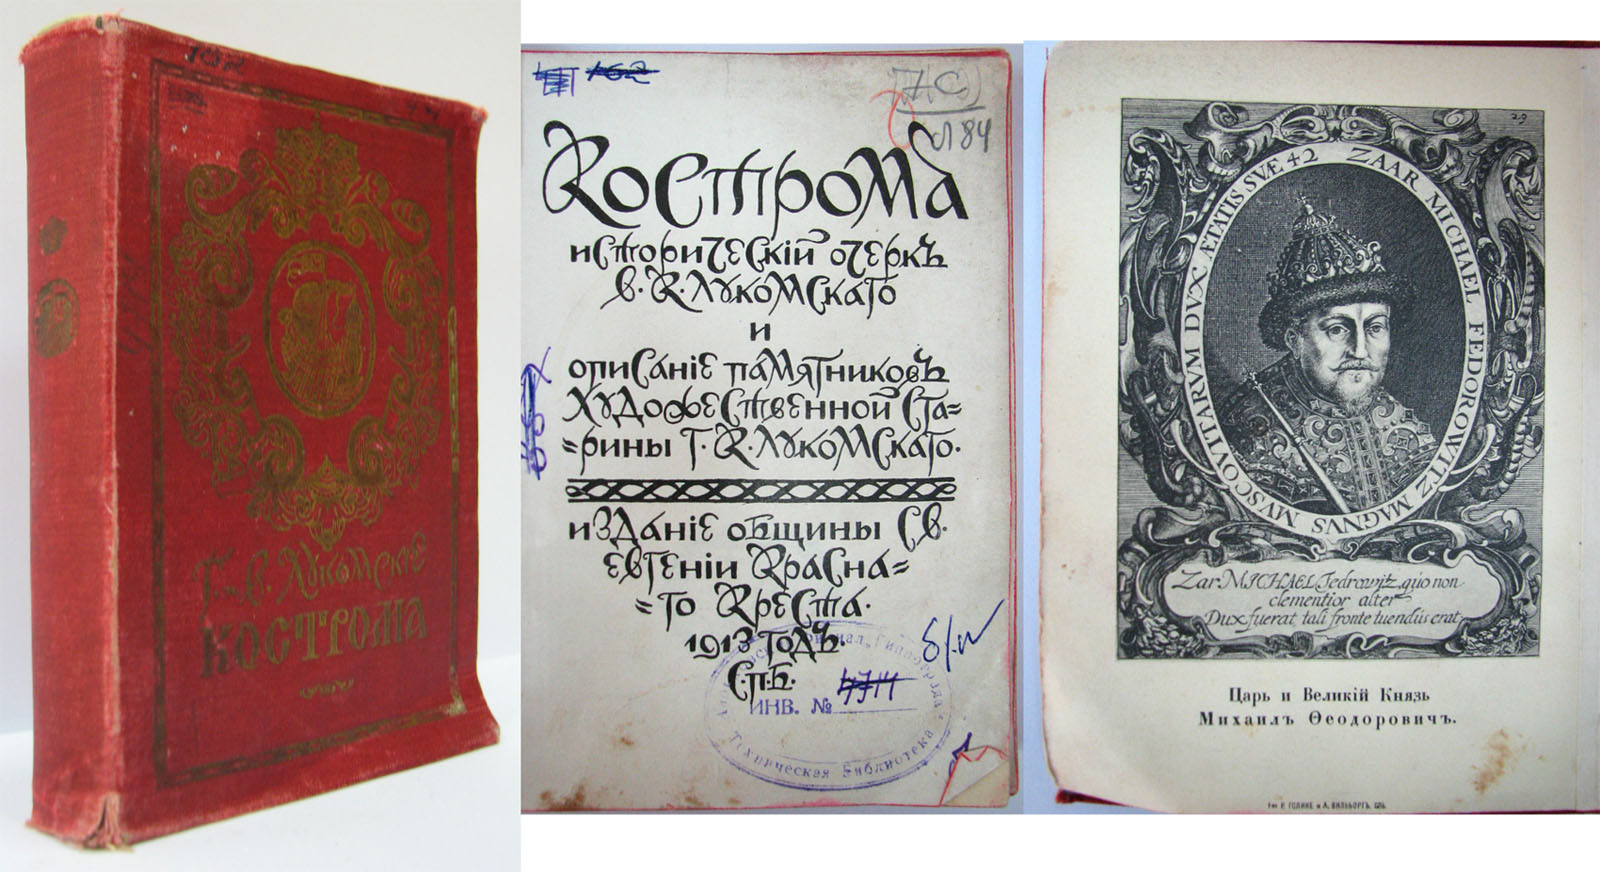 Г. и В. Лукомскіе
КОСТРОМА
162
Кострома
историческій очеркъ
В. К. Лукомскаго
и
описаніе памятниковъ
художественной ста=
=рины Г. К. Лукомскаго.
изданіе общины св.
Евгеніи Красна=
=го Креста.
1913 годъ.
С.П.Б.
ИНВ. №
Техническая Библиотека
29
ZAAR MICHAEL FEDOROWITZ MAGNVS MVSCOVITARVM DVX ÆTATIS SVÆ 42
Zar MICHAEL Fedrowitz, quo non
clementior alter
Dux fuerat tali fronte tuendus erat
Царь и Великій Князь
Михаилъ Ѳеодоровичъ.
Тип. Р. ГОЛИКЕ и А. ВИЛЬБОРГЪ. СПБ.